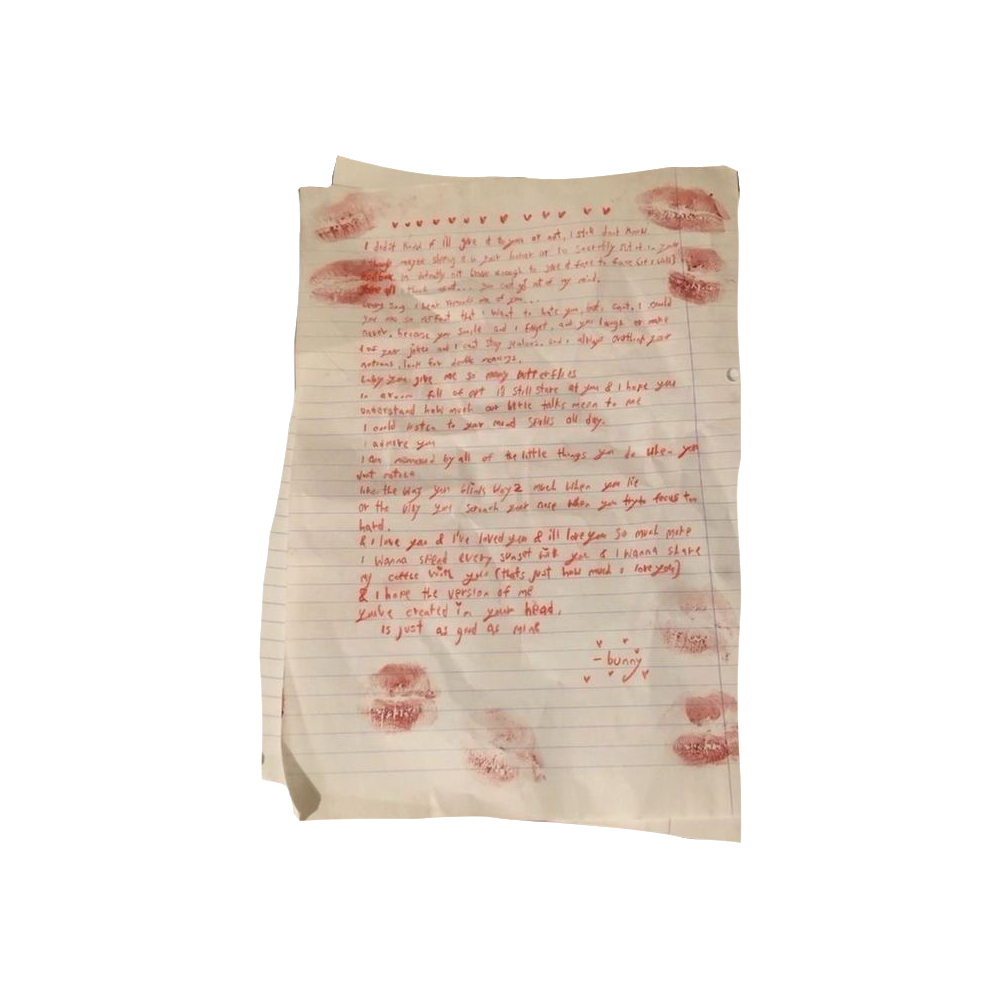 I didn't know if ill give it to you or not, I still don't know
though maybe slip it in your locker or to secretly put it in your
in not brave enough to give it face to face
I think about... you can't get out of my mind.
every song I hear reminds me of you...
you are so perfect that I want to hate you, but, cant, I could
never, because you smile and I forget, and you laugh or make
one of your jokes and I cant stop and I always overthink your
look for double meanings.
baby you give me so many butterflies
in a room full of art id still stare at you & I hope you
understand how much our little talks mean to me
I could listen to your mind all day.
I admire you
I am by all of the little things you do when you
dont notice
like the way you blink way 2 much when you lie
or the way you scrunch your nose when you try to focus too
hard.
& I love you & I've loved you & ill love you so much more
I wanna spend every sunset with you & I wanna share
my coffee with you (thats just how much I love you)
& I hope the version of me
you've created in your head,
is just as good as mine
- bunny